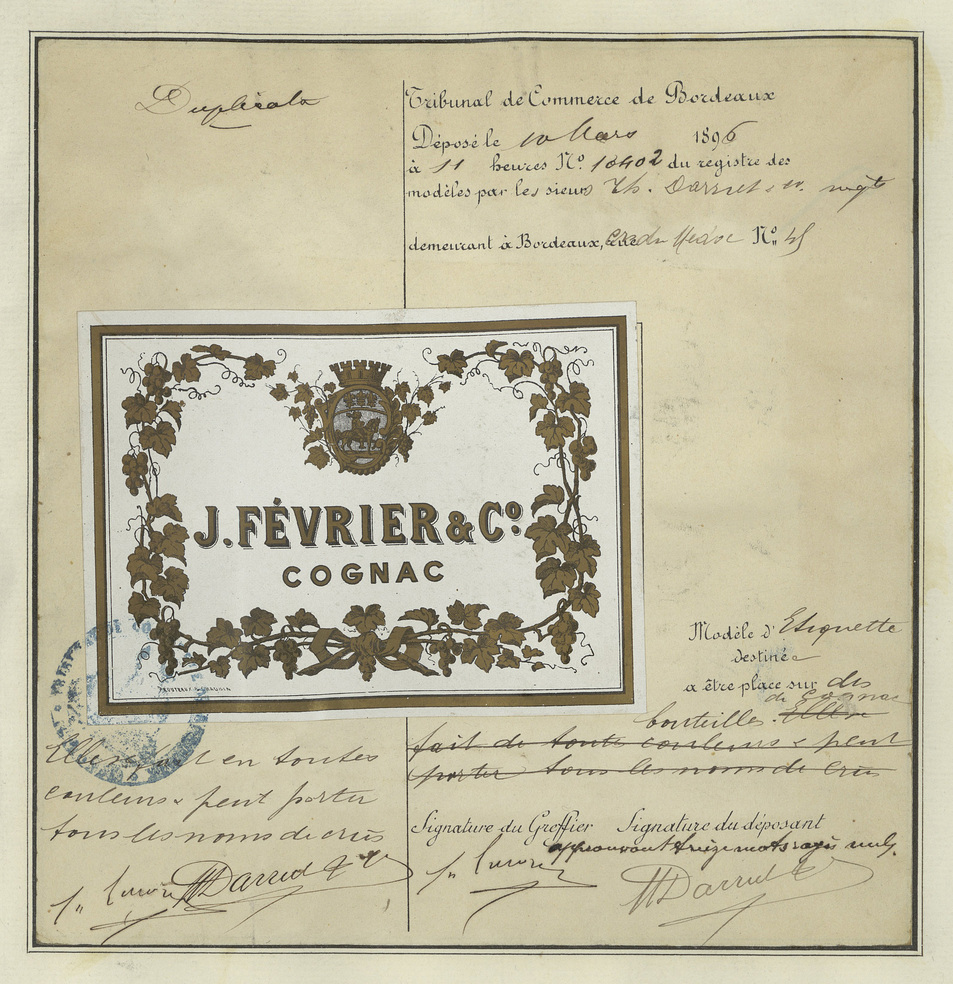 Duplicata
Tribunal de Commerce de Bordeaux
Déposé le 10 Mars 1896
à 11 heures Nº 10402 du registre des
modèles par les sieurs Th.
demeurant à Bordeaux, rue Nº
J. FÉVRIER & Cº
COGNAC
Modèle d'Etiquette
destinée
a être place sur des
bouteilles de Cognac. Elle se
fait de toute couleurs & peut
porter tous les noms de crûs
Elle se fait en toutes
couleurs & peut porter
tous les noms de crûs
Signature du Greffier Signature du déposant
approuvant treize mots rayés nuls.